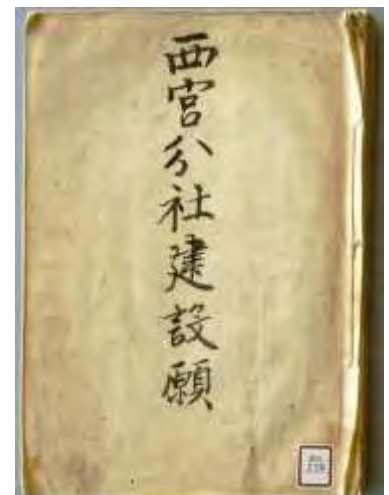 西宮分社建設願